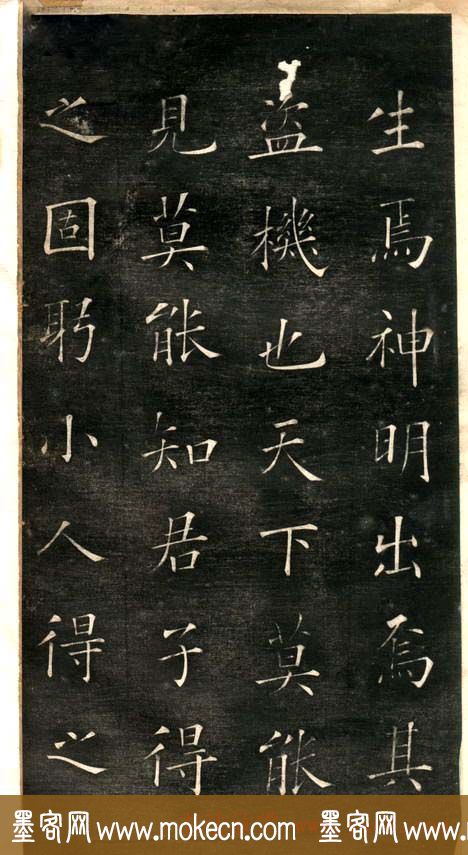 生焉神明出焉其
盜機也天下莫能
見莫能知君子得
之固躬小人得之
墨客网 www.mokecn.com 墨客网 www.mokecn.com